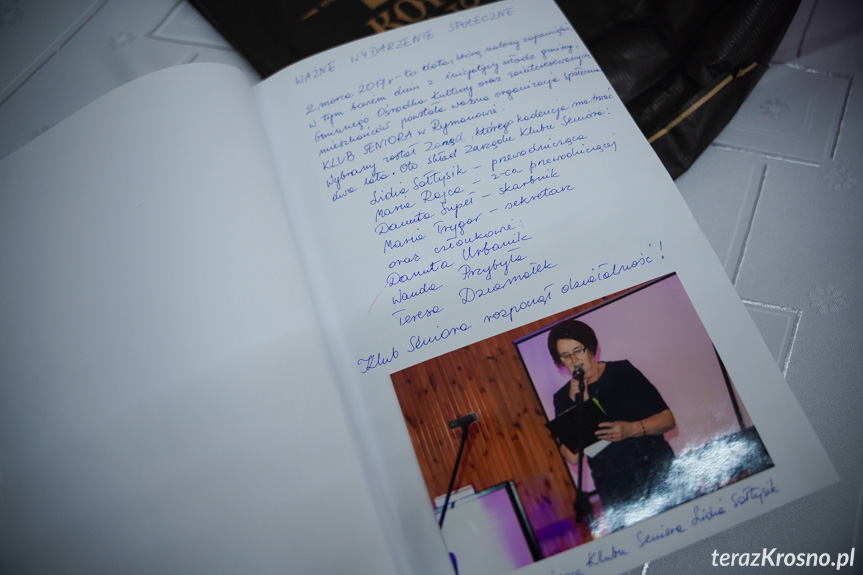 KOR
WAŻNE WYDARZENIE SPOŁECZNE
2 marca 2017 r - to data, którą należy zapamiętać.
w tym bowiem dniu z inicjatywy władz gminy,
Gminnego Ośrodka Kultury oraz zainteresowanych
mieszkańców powstała ważna organizacja społeczna
KLUB SENIORA w Rymanowie.
Wybrany został Zarząd, którego kadencja ma trwać
dwa lata. Oto skład Zarządu Klubu Seniora:
Lidia Sołtysik - przewodnicząca
Maria Rajca - z-ca przewodniczącej
Danuta Supeł - skarbnik
Maria Trygar - sekretarz
oraz członkowie:
Danuta Urbanik
Wanda Przybyła
Teresa Dziamałek
Klub Seniora rozpoczął działalność!
Klubu Seniora Lidia Sołtysik
terazKrosno.pl